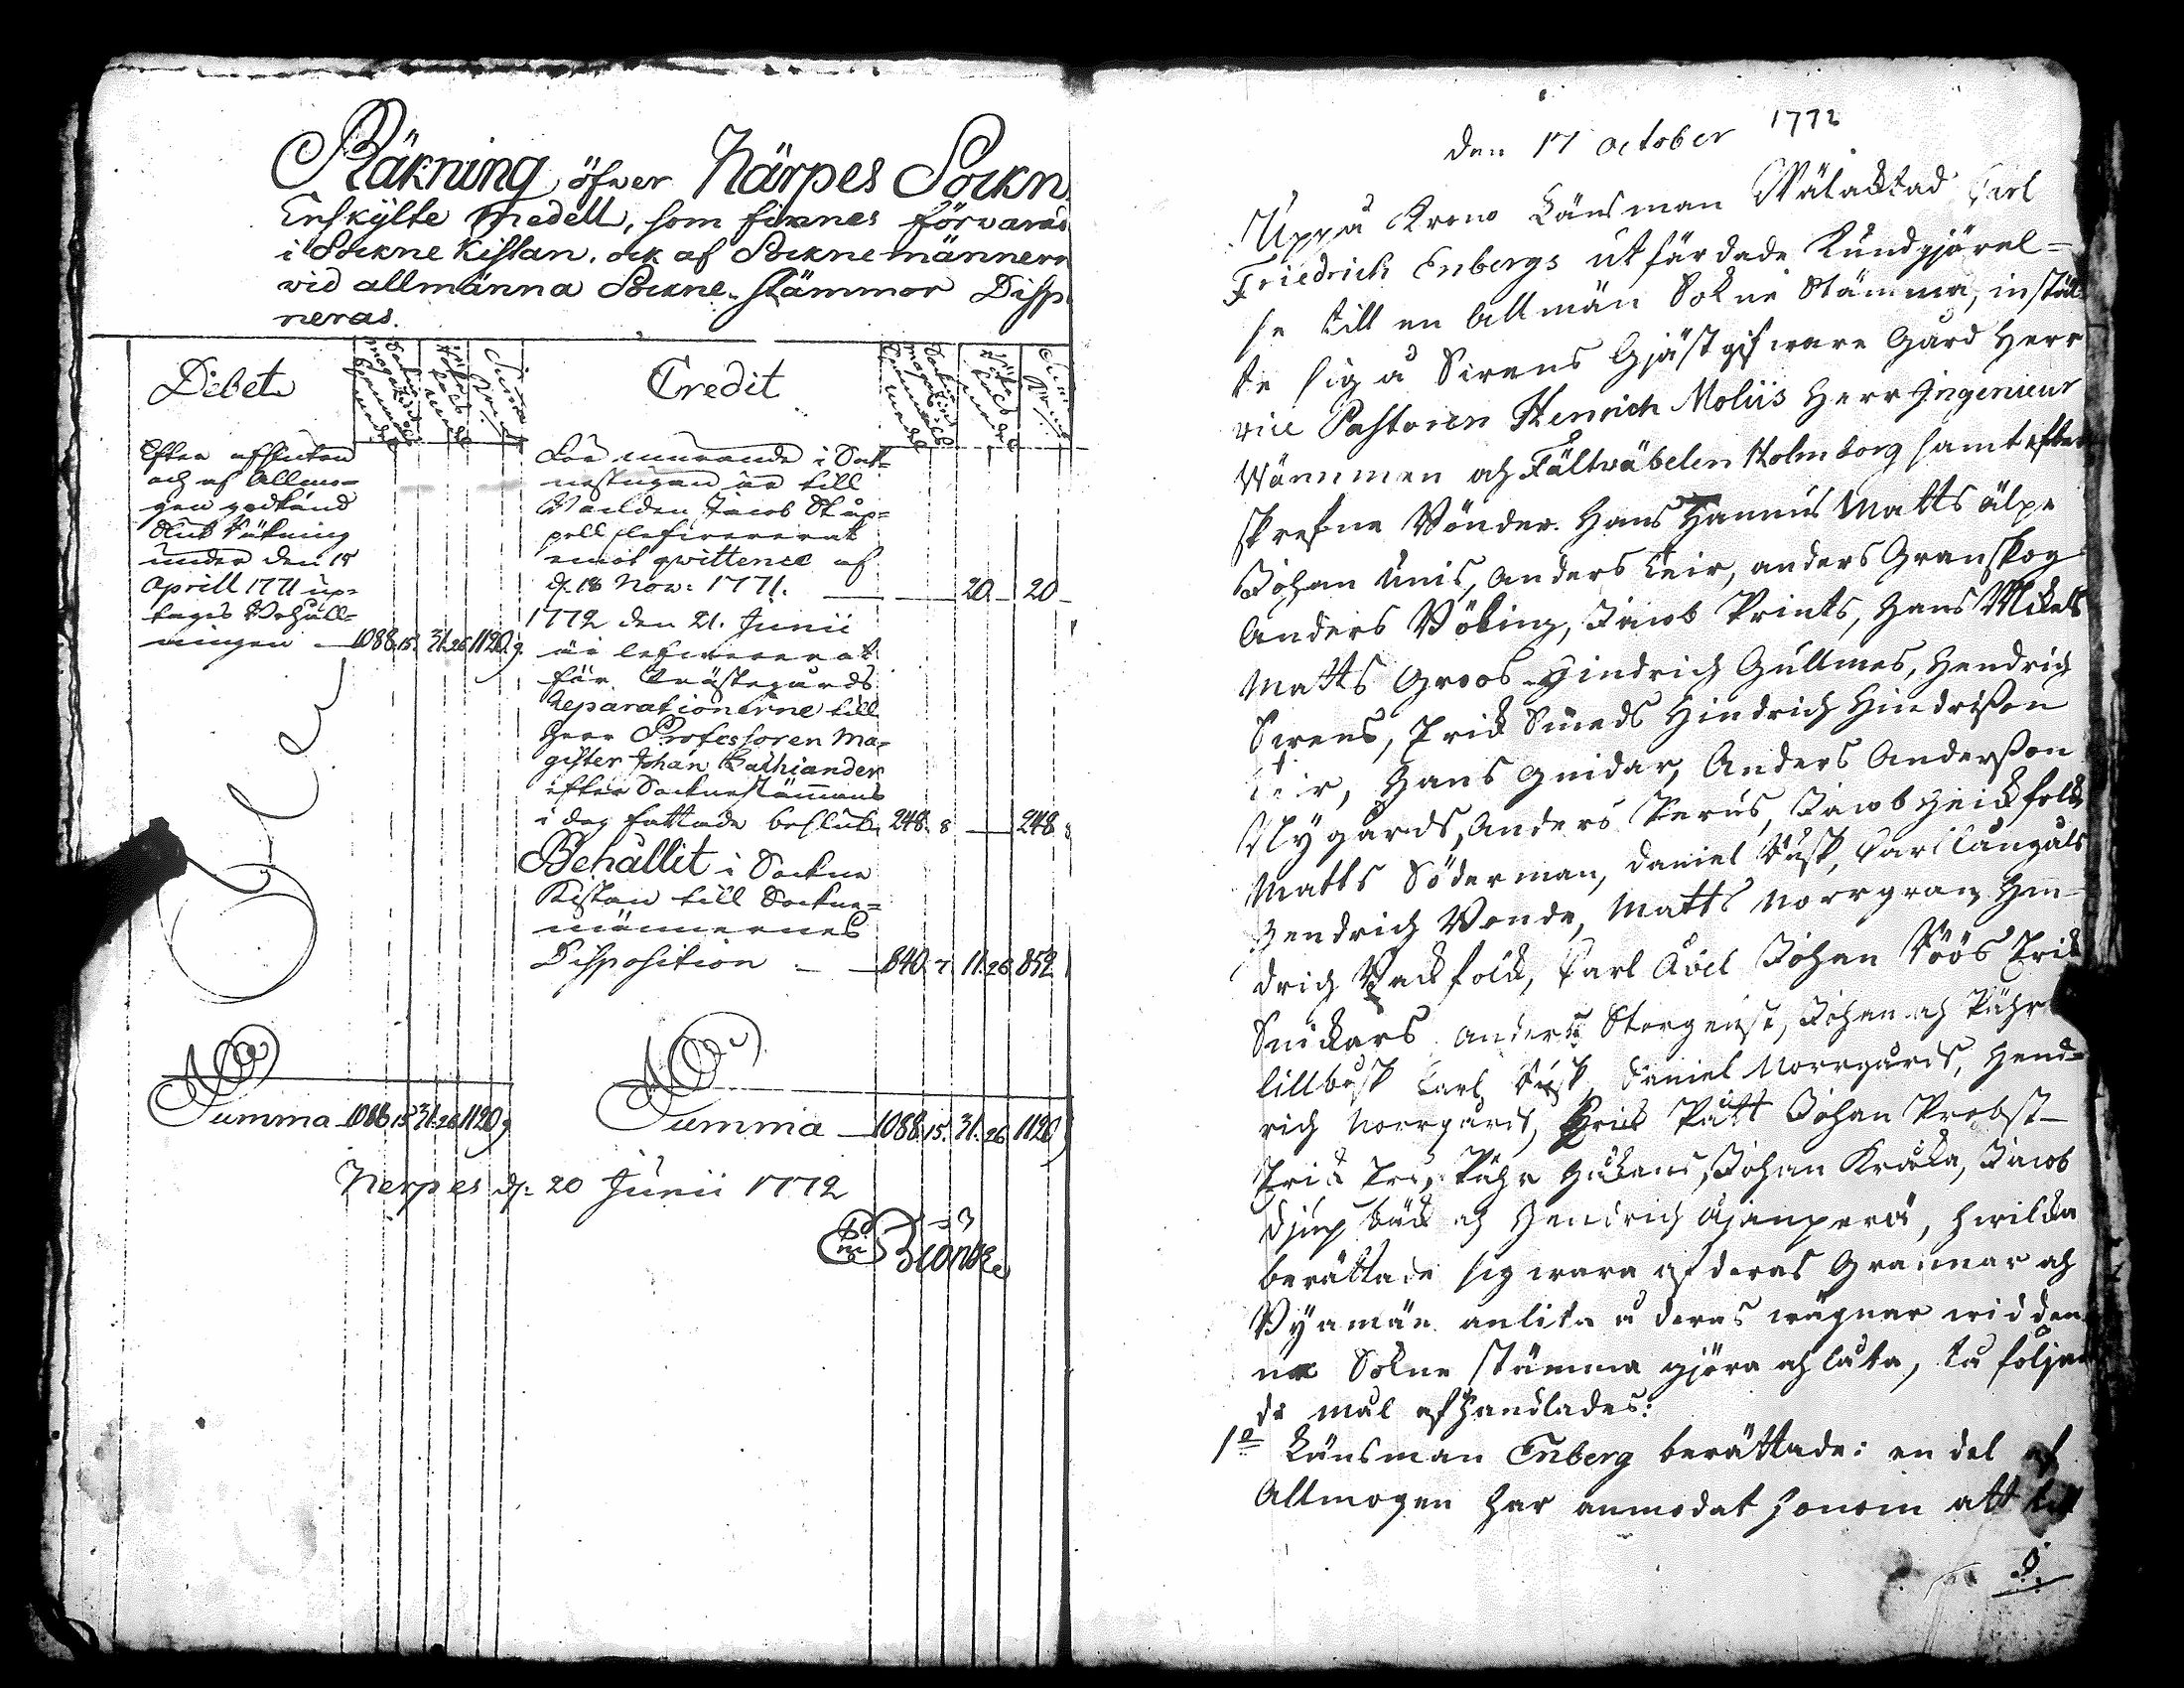 Räkning öfver Närpes Sockn
Enskylte medell, som finnes förvarad
i Sockne Kistan. ock af Sockne männern
vid allmänna Sockne stämmor Disp
neras.
Debet
Credit
Efter afsluten
och af Allmo-
gen godkänd
Slut Räkning
under den 15
Aprill 1771 up-
tages Behåll-
ningen 1088. 15. 31. 26 1120. 9.
För murande i Sock-
nestugan är till
Jacob Skap-
pell lefwererat
emot qwittence af
d. 18 Nov: 1771. 20. 20
1772 den 21. Junii
är lefwererat
för Prästegårds
Reparationerne till
Herr Professoren Ma-
gister Johan Bathiander
efter Sockne stämmans
i dag fattade beslut 248. 8 248. 8
Behållit i Sockne
Kistan till Sockne-
männernes
Disposition 840. 7 11. 26 852. 1
Summa 1088 15 31. 26 1120 9
Summa 1088. 15. 31. 26 1120 9
Nerpes d. 20 Junii 1772
den 17 October 1772
Uppå Krono Länsman Wälacktad Carl
Friedrich Enbergs utfärdade Kundgjörel-
se till en Allmän Sokne Stämma, instäl
te sig å Sirens Gjästgifware Gård Herr
vice Pastoren Henrich Moliis Herr Ingenieur
Wännmen och Fältväbelen Holmborg samt efter
skrefne Bönder. Hans Hannus Matts älpe
Johan Unis, Anders Leir, anders Granskog
Anders Böling, Jacob Prints, Hans Mikels
Matts Groos Hindrich Gullmes, Hendrich
Sirens, Erik Smeds Hindrich Hindrißon
Leir, Hans Gnidar, Anders Anderßon
Nygårds, Anders Perus, Jacob Heickfolck
Matts Söderman, Daniel Busk, Carl Långåls
Hendrich Bonde, Matts Norrgran, Hen-
drich Backfolck, Carl Åvel Johan Röös Erik
Snickars Anders Storgeust, Johan och Pähr
Lillbusk Carl Busk, Daniel Norrgårds, Hend-
rich Norrgård, Erick Pått Johan Probst
Erik Pähr Johan Kråcka, Jacob
Djupbäck och Hendrich Åjanperä, hwilka
berättade sig wara af deras Grannar och
Byamän anlita å deras wägnar wid den-
na Sokne stämma gjöra och låta, då följan
de mål afhandlades:
1o Länsman Enberg berättade: en del af
Allmogen har anmodat honom att till